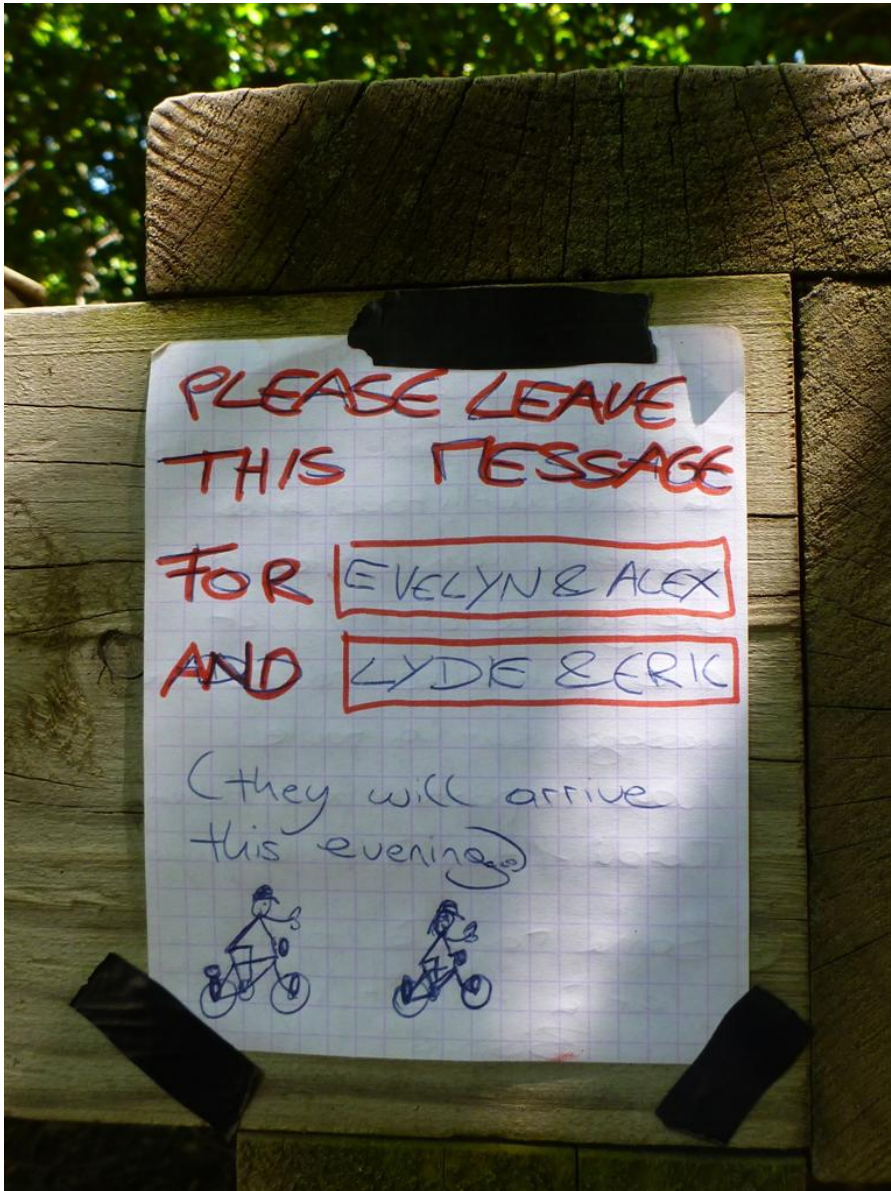 PLEASE LEAVE
THIS MESSAGE
FOR EVELYN & ALEX
AND LYDIE & ERIC
(they will arrive
this evening)